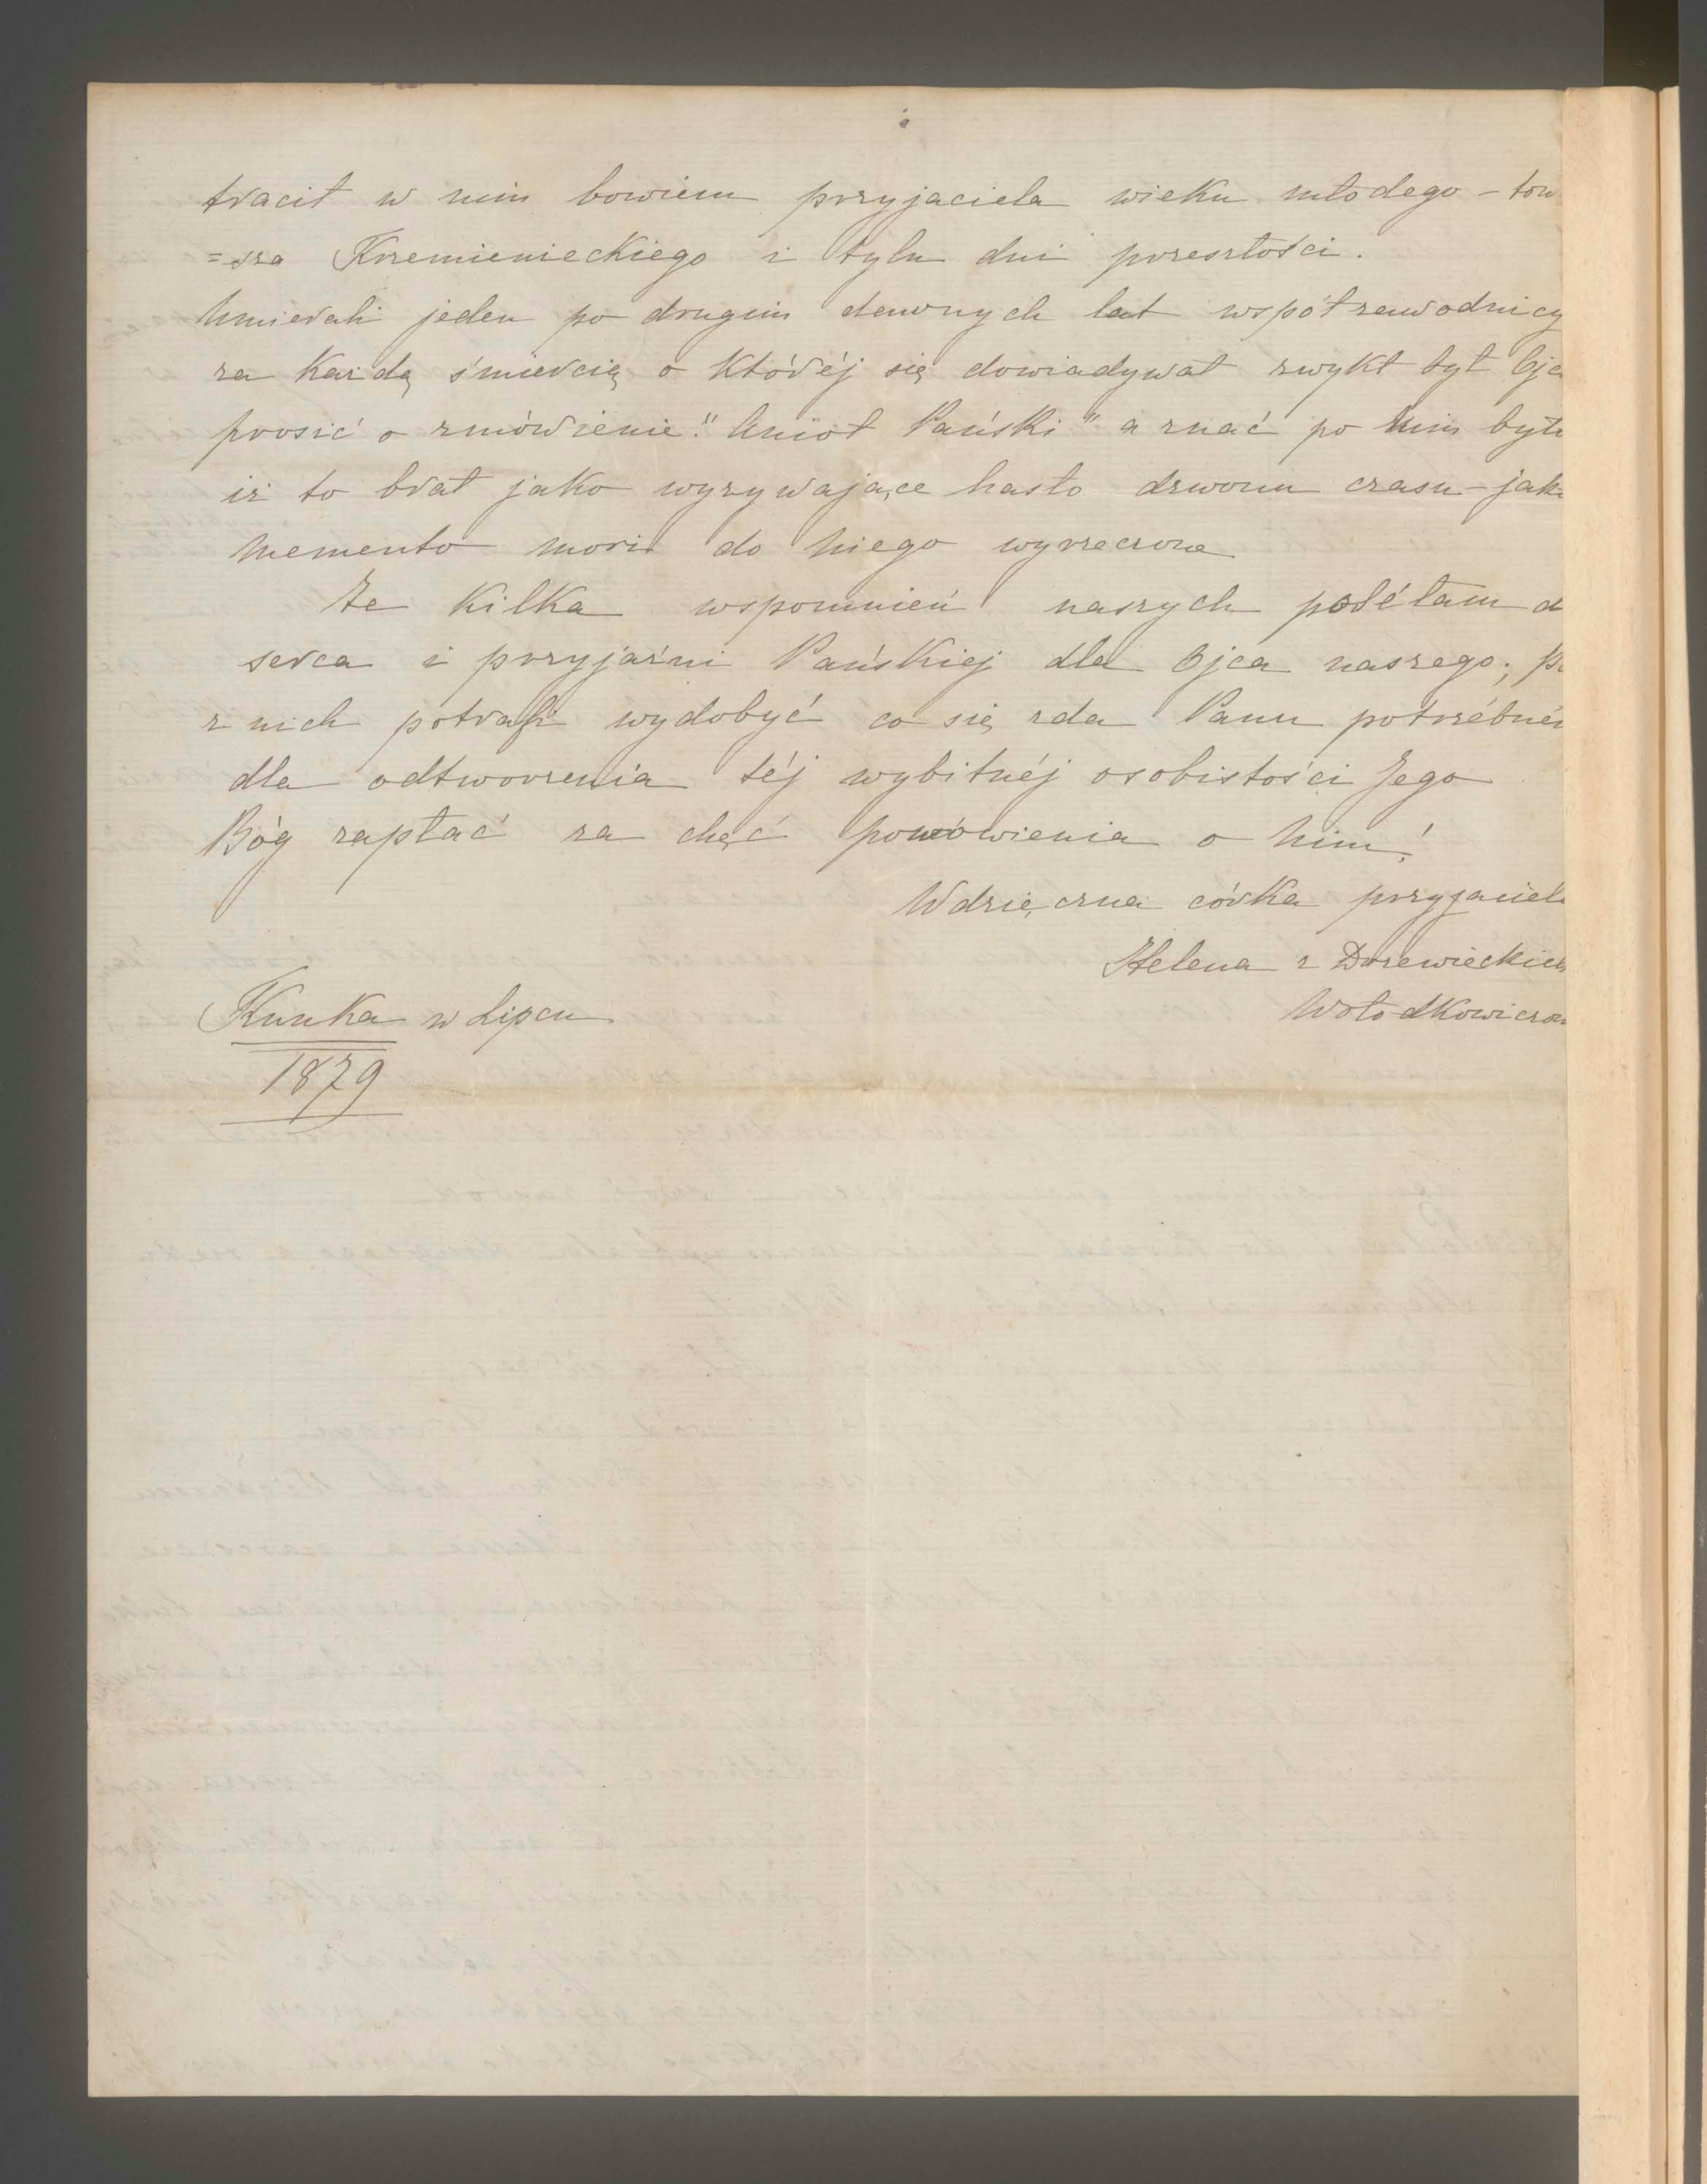 tracił w nim bowiem przyjaciela wieku młodego – tow
=sza Krzemienieckiego i tylu dni przeszłości.
Umierali jeden po drugim dawnych lat współzawodnicy
za każdą śmiercią o któréj się dowiadywał zwykł był Ojc
prosić o zmówienie "Anioł Pański" a znać po nim było
iż to brał jako wyzywające hasło dzwonu czasu – jak
memento mori do niego wyrzeczone
Te kilka wspomnień naszych posełam d
serca i przyjaźni Pańskiej dla Ojca naszego;
z nich potrafi wydobyć co się zda Panu potrzébné
dla odtworzenia téj wybitnéj osobistości Jego
Bóg zapłać za chęć pomówienia o nim!
Wdzięczna córka przyjaciel
Helena z Drzewieckich
Wołodkowiczow
Kunka w Lipcu
1879